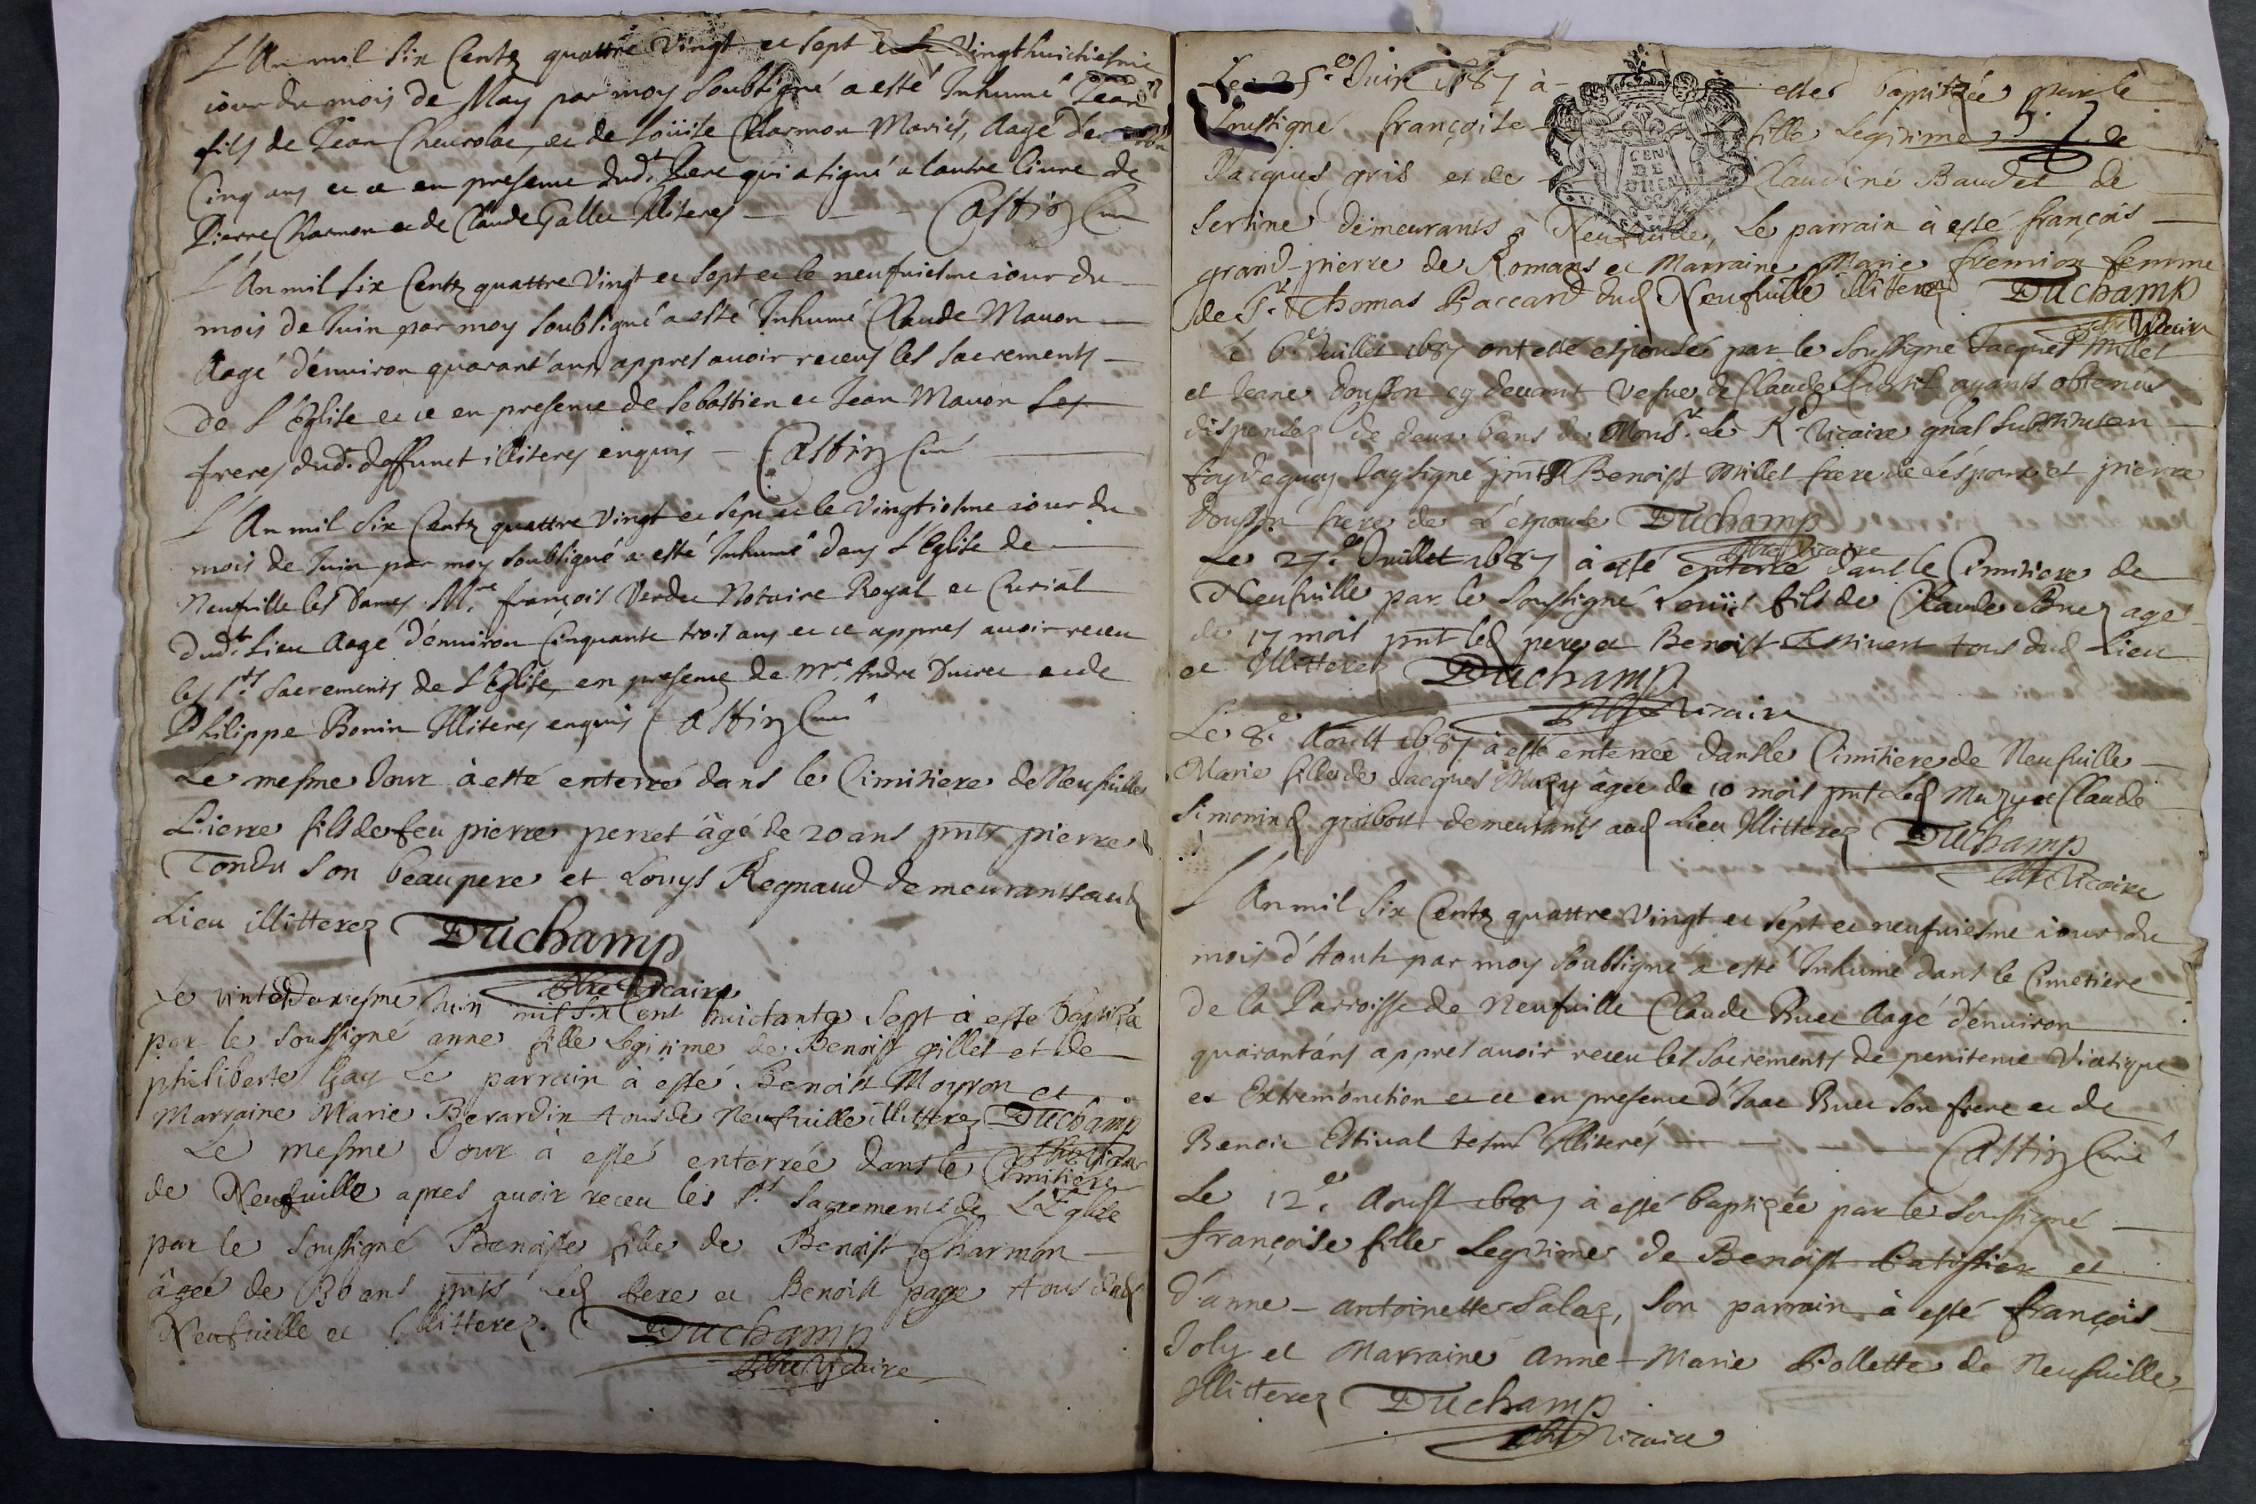 L'An mil six Centz quattre Vingt et sept et le Vingthuictiesme
iour du mois de May par moy soubsigné a esté Inhumé Jean
fils de Jean Cheurolac, et de Loüise Charmon Mariés, Aagé d'environ
Cinq ans et ce en presence dud.t Pere qui a signé a lautre livre de
Pierre Charmon et de Claude Gallet Illiteres Castin Curé
L'An mil six Centz quattre Vingt et sept et le neufuiesme iour du
mois de Juin par moy soubsigné a esté Inhumé Claude Mauon
Aagé d'enuiron quarant'ans appres auoir receus les sacrements
de L'Eglise et ce en presence de Sebastien et Jean Mauon ses
freres dud.t deffunct illiteres enquis Castin Curé
L'An mil six Centz quattre vingt et sept et le vingtiesme iour du
mois de Juin par moy soubsigné a esté Inhumé dans L'Eglise de
Neufuille les Dames M.re françois Verdet Notaire Royal et Curial
dud.t Lieu Aagé d'enuiron Cinquante trois ans et ce appres auoir receu
les S.ts Sacrements de L'Eglise, en presence de M.re Andre Ducret et de
Philippe Bonin Illiteres enquis Castin Curé
Le mesme Jour à esté enterré dans le Cimitiere de Neufuille
Pierre fils de feu pierre perret âgé de 20 ans pnts pierre
Tondu son beaupere et Louys Regnaud demeurants aud
Lieu illitterez Duchamp
pbre Vicaire
Le vintedeuxiesme Juin mil six cent huictante sept à esté baptisée
par le soussigné anne fille legitime de Benoist gillet et de
philiberte Gay Le parrain à esté Benoist Moyron et
Marraine Marie Berardin tous de Neufuille illitterez Duchamp
pbre Vicaire
Le mesme Jour à esté enterrée dans le Cimitiere
de Neufuille apres auoir receu les S.ts Sacrements de L'Eglise
par le soussigné Benoiste fille de Benoist Charmon
âgée de 30 ans pnts led Pere et Benoist page tous dud
Neufuille et Illitterez. Duchamp
pbre Vicaire
Le 25.e Juin 1687 à esté baptizée par le
soussigné françoise fille legitime de
Jacques gris et de Claudine Baudet de
Sertine demeurants à Neufuille, Le parrain à esté françois
grand-pierre de Romans et Marraine Marie fremion femme
de S.r Thomas Baccard dud Neufuille illiterez Duchamp
pbre Vicaire
Le 6.e Juillet 1687 ont esté espousés par le soussigné Jacques Millet
et Jeane dousson cy deuant vefue de Claude Curtil ayants obtenus
dispenses de deux bans de Mons.r Le R. Vicaire gnal substitut en
foy dequoy Jay signé pnts Benoist Millet frere de L'espoux et pierre
dousson frere de L'espouse Duchamp
pbre Vicaire
Le 27.e Juillet 1687 à esté enterré dans le Cimitiere de
Neufuille par le soussigné Louis fils de Claude Bruet agé
de 17 mois pnt led pere et Benoist Estiuent tous dud Lieu
et Illitterez Duchamp
pbre Vicaire
Le 8.e Aoust 1687 à esté enterrée dans le Cimitiere de Neufuille
Marie fille de Jacques Muzy âgée de 10 mois pnt Led Muzy et Claude
Simonin demeurants aud Lieu Illitterez Duchamp
pbre Vicaire
L'An mil six Centz quattre vingt et sept et neufuiesme iour du
mois d'Aoust par moy soubsigné a esté Inhumé dans le Cimetiere
de la Parroisse de Neufuille Claude Bruet Aagé d'enuiron
quarant'ans appres auoir receu les sacrements de penitence Viatique
et Extrem'onction et ce en presence d'Isaac Bruet son frere et de
Benoit Estiual tesm Illiterés Castin Curé
Le 12.e Aoust 1687 à esté baptizée par le soussigné
françoise fille Legitime de Benoist Patissier et
d'anne-antoinette Salaz, son parrain à esté françois
Joly et Marraine Anne-Marie Pollette de Neufuille
Illitterez Duchamp
pbre Vicaire